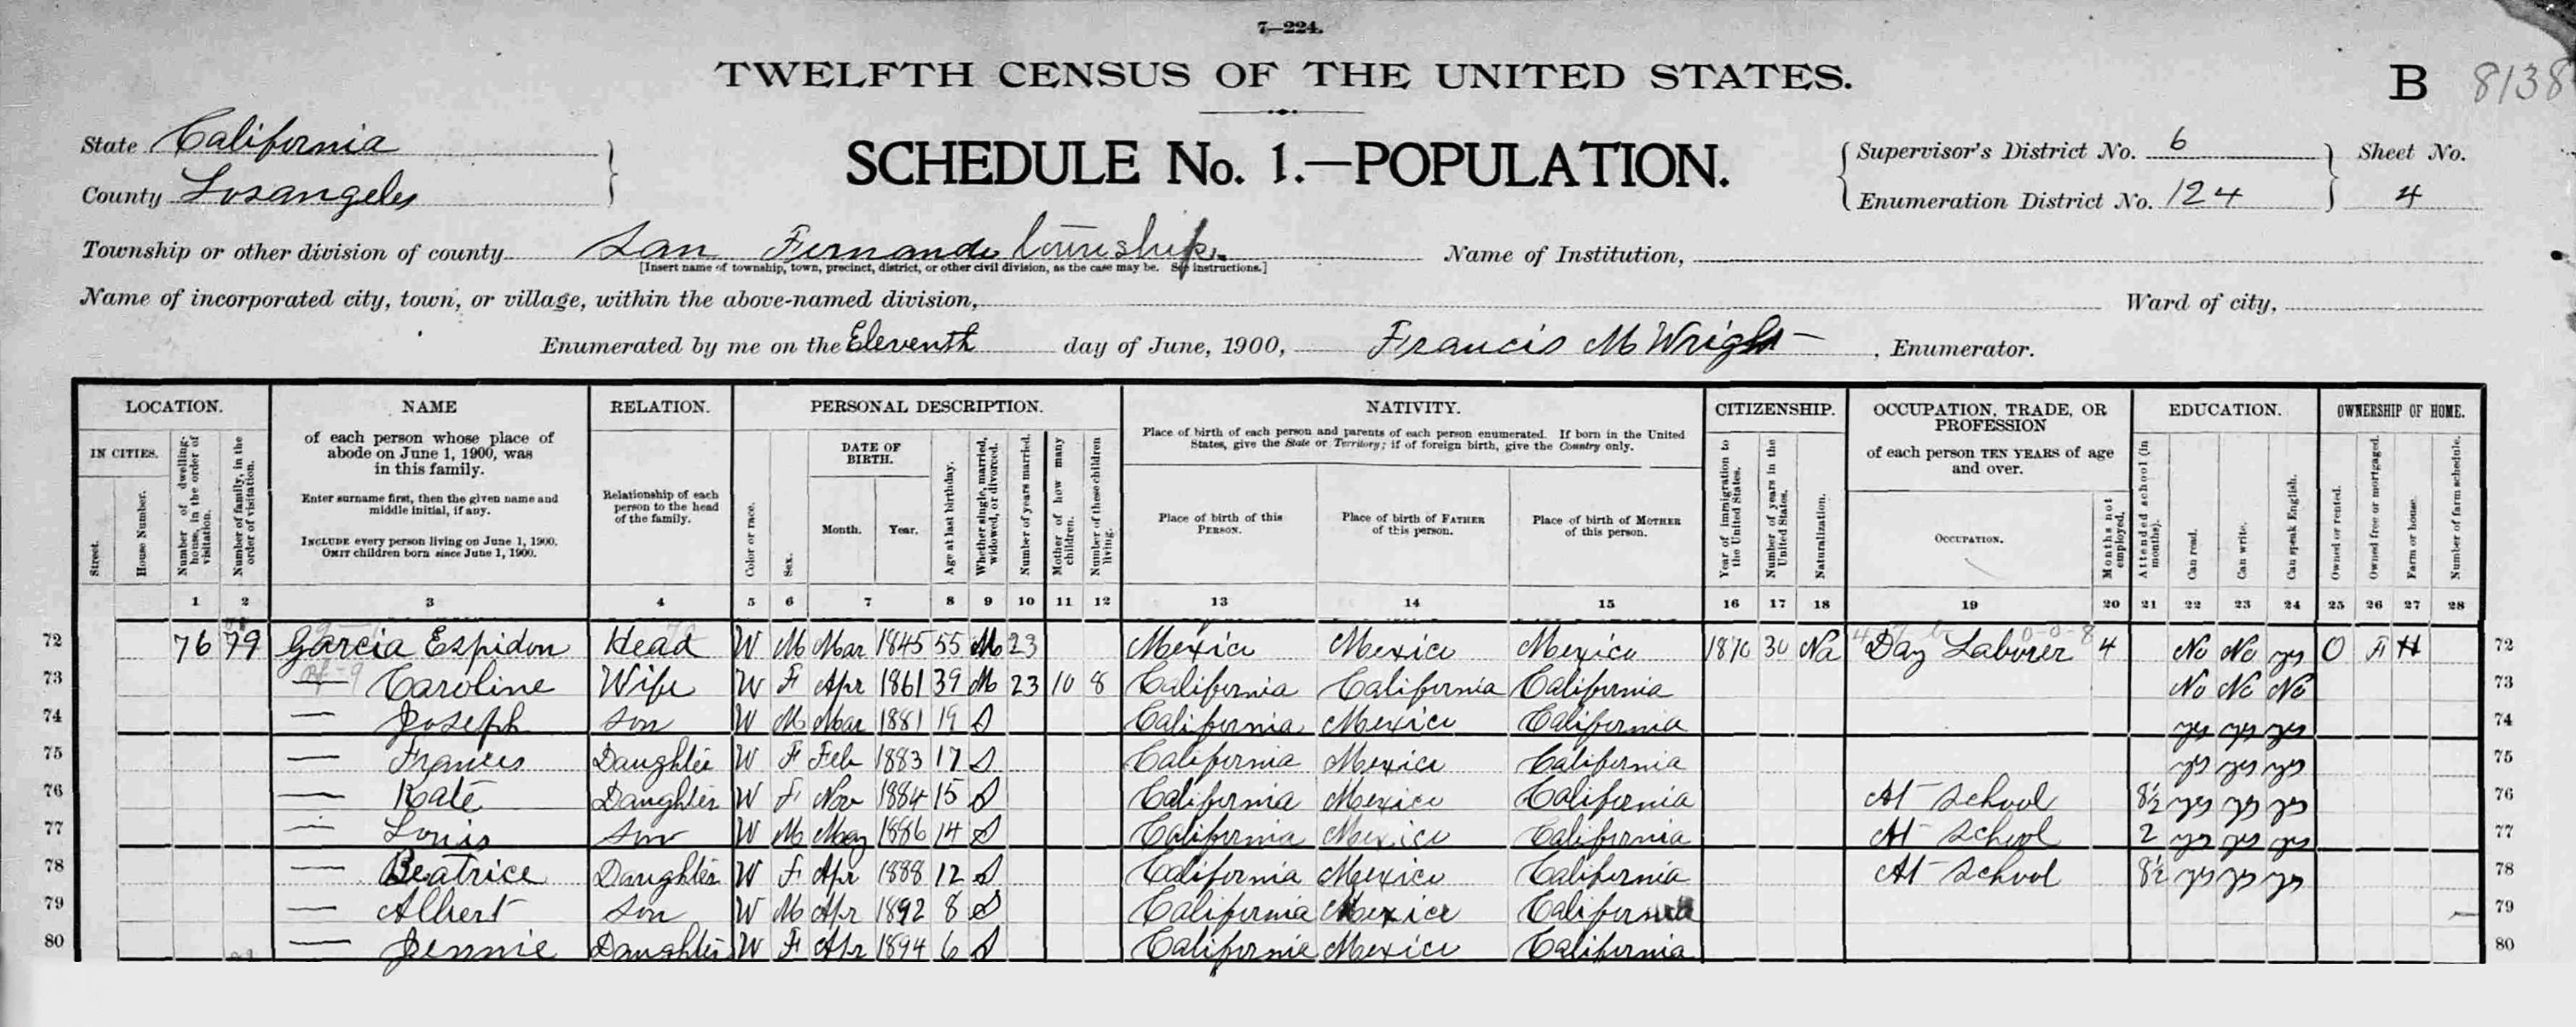 7—224.
TWELFTH CENSUS OF THE UNITED STATES.
B 8138
State California
County Losangeles
SCHEDULE No. 1.—POPULATION.
Supervisor's District No. 6
Enumeration District No. 124
Sheet No.
4
Township or other division of county San Fernando Township
[Insert name of township, town, precinct, district, or other civil division, as the case may be. See instructions.]
Name of Institution,
Name of incorporated city, town, or village, within the above-named division,
Ward of city,
Enumerated by me on the Eleventh day of June, 1900, Francis M Wright, Enumerator.
LOCATION.
IN CITIES.
Street.
House Number.
Number of dwelling-house, in the order of visitation.
Number of family, in the order of visitation.
NAME
of each person whose place of
abode on June 1, 1900, was
in this family.
Enter surname first, then the given name and
middle initial, if any.
INCLUDE every person living on June 1, 1900.
OMIT children born since June 1, 1900.
RELATION.
Relationship of each
person to the head
of the family.
PERSONAL DESCRIPTION.
Color or race.
Sex.
DATE OF
BIRTH.
Month.
Year.
Age at last birthday.
Whether single, married, widowed, or divorced.
Number of years married.
Mother of how many children.
Number of these children living.
NATIVITY.
Place of birth of each person and parents of each person enumerated. If born in the United
States, give the State or Territory; if of foreign birth, give the Country only.
Place of birth of this
PERSON.
Place of birth of FATHER
of this person.
Place of birth of MOTHER
of this person.
CITIZENSHIP.
Year of immigration to the United States.
Number of years in the United States.
Naturalization.
OCCUPATION, TRADE, OR
PROFESSION
of each person TEN YEARS of age
and over.
OCCUPATION.
Months not employed.
EDUCATION.
Attended school (in months).
Can read.
Can write.
Can speak English.
OWNERSHIP OF HOME.
Owned or rented.
Owned free or mortgaged.
Farm or house.
Number of farm schedule.
1 2 3 4 5 6 7 8 9 10 11 12 13 14 15 16 17 18 19 20 21 22 23 24 25 26 27 28
72 76 79 Garcia Espidon Head W M Mar 1845 55 M 23 Mexico Mexico Mexico 1870 30 Na Day Laborer 4 No No yes O F H 72
73 — Caroline Wife W F Apr 1861 39 M 23 10 8 California California California No No No 73
74 — Joseph son W M Mar 1881 19 S California Mexico California yes yes yes 74
75 — Frances Daughter W F Feb 1883 17 S California Mexico California yes yes yes 75
76 — Kate Daughter W F Nov 1884 15 S California Mexico California At School 8½ yes yes yes 76
77 — Louis son W M May 1886 14 S California Mexico California At School 2 yes yes yes 77
78 — Beatrice Daughter W F Apr 1888 12 S California Mexico California At School 8½ yes yes yes 78
79 — Albert son W M Apr 1892 8 S California Mexico California 79
80 — Jennie Daughter W F Apr 1894 6 S California Mexico California 80